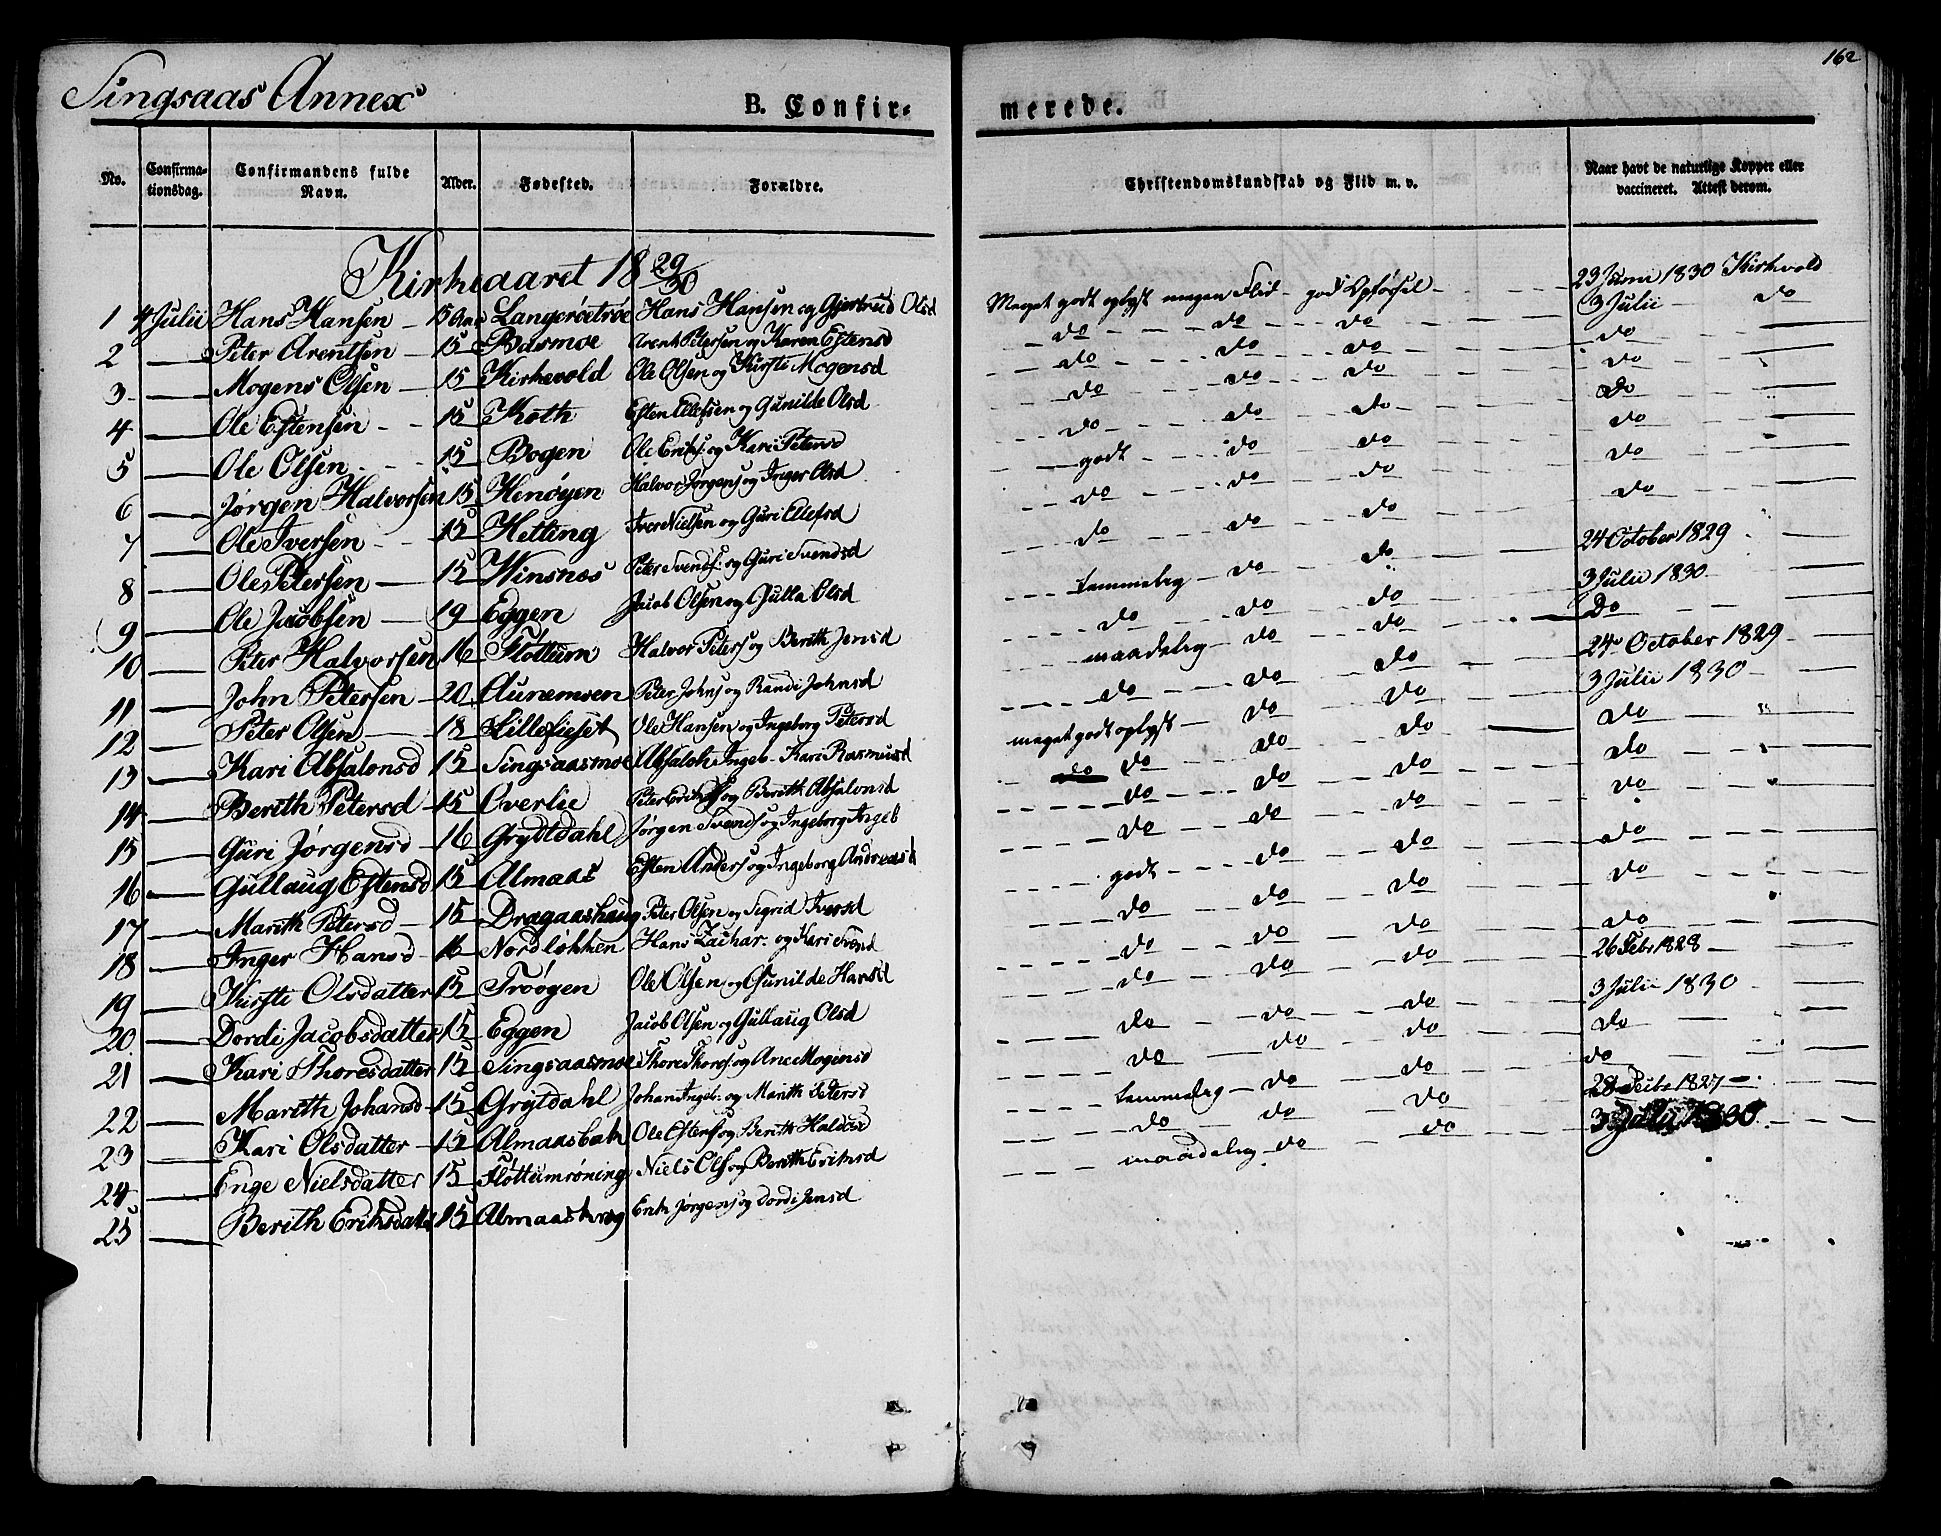 162
Singsaas Annex
B. Confirmerede.
No. Confirmationsdag. Confirmandens fulde Navn. Alder. Fødested. Forældre. Christendomskundskab og Flid m. v. Naar havt de naturlige Kopper eller vaccineret. Attest derom.
Kirkeaaret 18 29/30
1 4 Julii Hans Hansen 15 Aar Langerøetrøe Hans Hansen og Gjertrud Olsd Meget godt oplyst megen Flid god Opførsel 23 Juni 1830 Kirkvold
2 Peter Arentsen 15 Basmoe Arent Petersen og Karen Estensd do do do 3 Julii do
3 Mogens Olsen 15 Kirkevold Ole Olsen og Kirsti Mogensd do do do do
4 Ole Estensen 15 Koth Esten Ellefsen og Gunilde Olsd do do do do
5 Ole Olsen 15 Bogen Ole Eriks: og Kari Petersd do do do do
6 Jørgen Halvorsen 15 Henøyen Halvor Jørgens og Inger Olsd godt do do do
7 Ole Iversen 15 Hetting Iver Nielsen og Guri Ellefsd do do do do
8 Ole Petersen 15 Winsnes Peter Svends: og Guri Svendsd do do do do
9 Ole Jacobsen 19 Eggen Jacob Olsen og Gulla Olsd temmelig do do 24 October 1829
10 Peter Halvorsen 16 Flottum Halvor Peters og Berith Jensd do do do 3 Julii 1830
11 John Petersen 20 Aunemoen Peter Johns og Randi Johnsd maadelig do do Do
12 Peter Olsen 18 Lillefieset Ole Hansen og Ingeborg Petersd do do do 24 October 1829
13 Kari Absalonsd 15 Singsaasmoe Absaloh Ingeb Kari Rasmusd meget godt oplyst do do 3 Julii 1830
14 Berith Petersd 15 Overlie Peter Eriks og Berith Absalonsd do do do do
15 Guri Jørgensd 16 Gryttdahl Jørgen Svends og Ingeborg Ingeb do do do do
16 Gullaug Estensd 15 Almaas Esten Anders og Ingeborg Andreasd do do do do
17 Marith Petersd 15 Dragaashaug Peter Olsen og Sigrid Iversd godt do do do
18 Inger Hansd 16 Nordløkken Hans Zachar: og Kari Svend do do do do
19 Kirsti Olsdatter 15 Trøøgen Ole Olsen og Gunilde Hansd do do do do
20 Dordi Jacobsdatter 15 Eggen Jacob Olsen og Gullaug Olsd do do do 26 Febr 1828
21 Kari Thoresdatter 15 Singsaasmoe Thore Thores og Ane Mogensd do do do 3 Julii 1830
22 Marith Johansd 15 Grytdahl Johan Ingeb: og Marith Petersd do do do do
23 Kari Olsdatter 15 Almaasbak Ole Estens og Berith Haldosd temmelig do do do
24 Enge Nielsdatter 15 Flottumrøning Niels Ols og Berith Eriksd do do do 28 Feibr 1827
25 Berith Eriksdatter 15 Almaaskrog Erik Jørgens og Dordi Jensd maadelig do do 3 Julii 1830